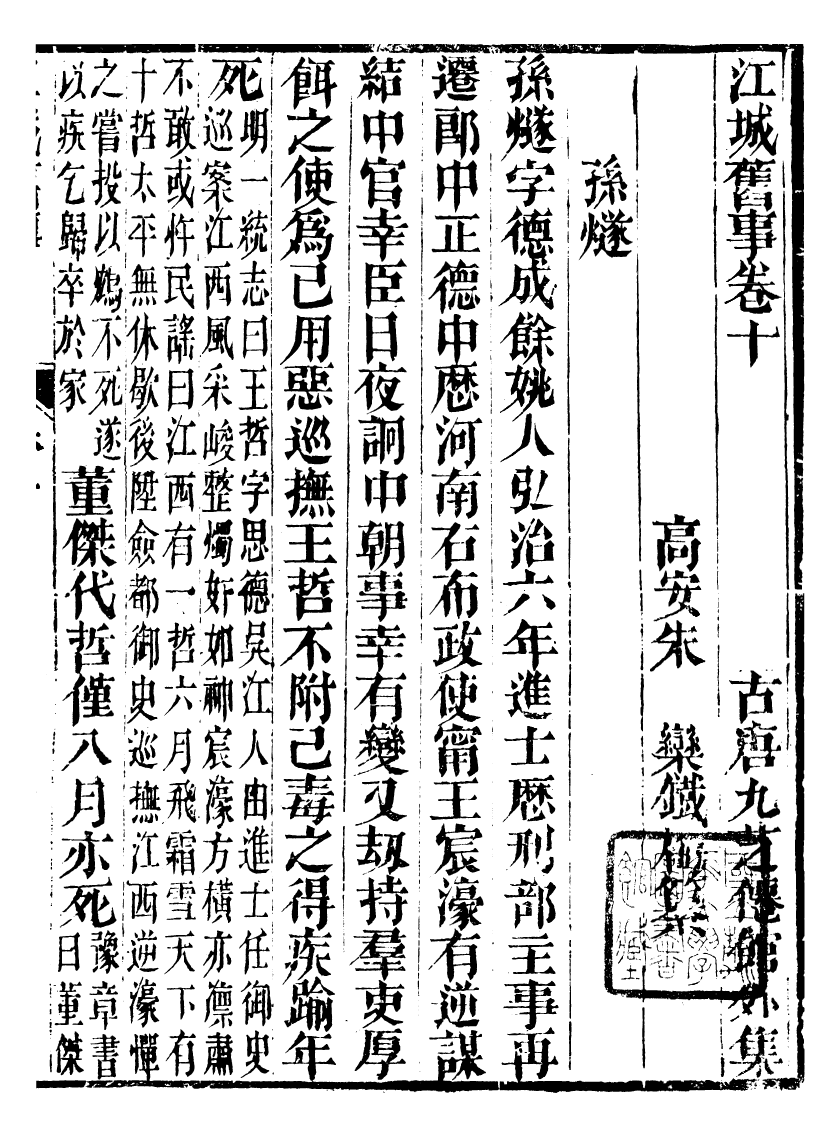 江城舊事卷十　古唐九芝僊館外集
高安朱　欒鐵
孫燧
孫燧字德成餘姚人弘治六年進士厯刑部主事再
遷郎中正德中厯河南右布政使甯王宸濠有逆謀
結中官幸臣日夜詗中朝事幸有變又劫持羣吏厚
餌之使爲己用惡巡撫王哲不附己毒之得疾踰年
死明一統志曰王哲字思德吳江人由進士任御史
巡案江西風采峻整燭奸如神宸濠方橫亦凛肅
不敢或忤民謡曰江西有一哲六月飛霜雪天下有
十哲太平無休歇後陞僉都御史巡撫江西逆濠憚
之嘗投以鴆不死遂
以疾乞歸卒於家
董傑代哲僅八月亦死
豫章書
曰董傑